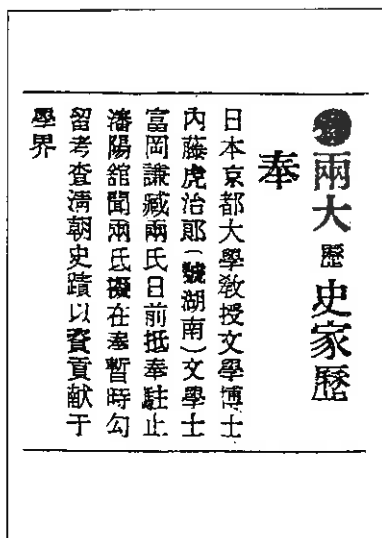 兩大歷史家歷
奉
日本京都大學敎授文學博士
內藤虎治郞(號湖南)文學士
富岡謙臧兩氏日前抵奉駐止
瀋陽舘聞兩氏擬在奉暫時勾
留考查淸朝史蹟以資貢献于
學界